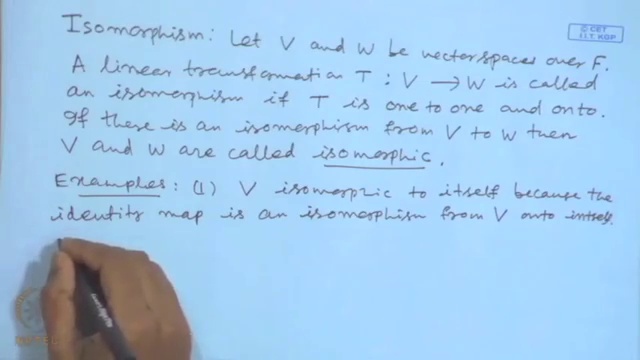 © CET
I.I.T. KGP
Isomorphism: Let V and W be vector spaces over F.
A linear transformation T : V → W is called
an isomorphism if T is one to one and onto.
If there is an isomorphism from V to W then
V and W are called isomorphic.
Examples: (1) V isomorphic to itself because the
identity map is an isomorphism from V onto intself.
NPTEL